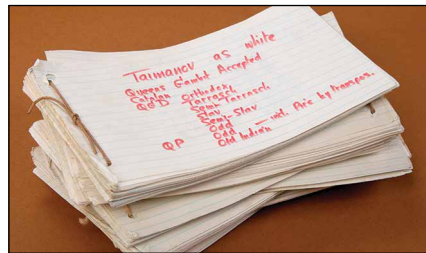 Taimanov as white
Queens Gambit Accepted
Catalan
QGD Orthodox,
Tarrasch
Semi-Tarrasch
Slav
Semi-Slav
Odd
Odd — incl. Pirc by transpos.
QP Old Indian